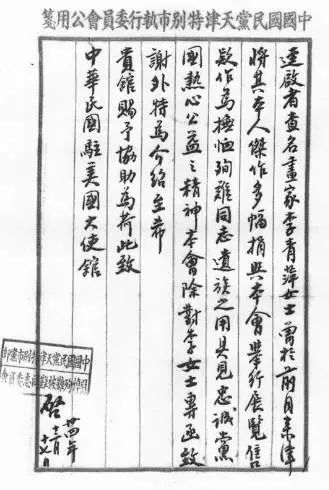 中國國民黨天津特別市執行委員會公用箋
逕啟者查名畫家李青萍女士曾於前月來津
將其本人傑作多幅捐與本會舉行展覽售
款作為撫恤殉難同志遺族之用具見忠誠黨
國熱心公益之精神本會除對李女士專函致
謝外特為介紹至希
貴館賜予協助為荷此致
中華民國駐美國大使館
中國國民黨天津特別市黨部
委員會
啟
卅四年
十七日